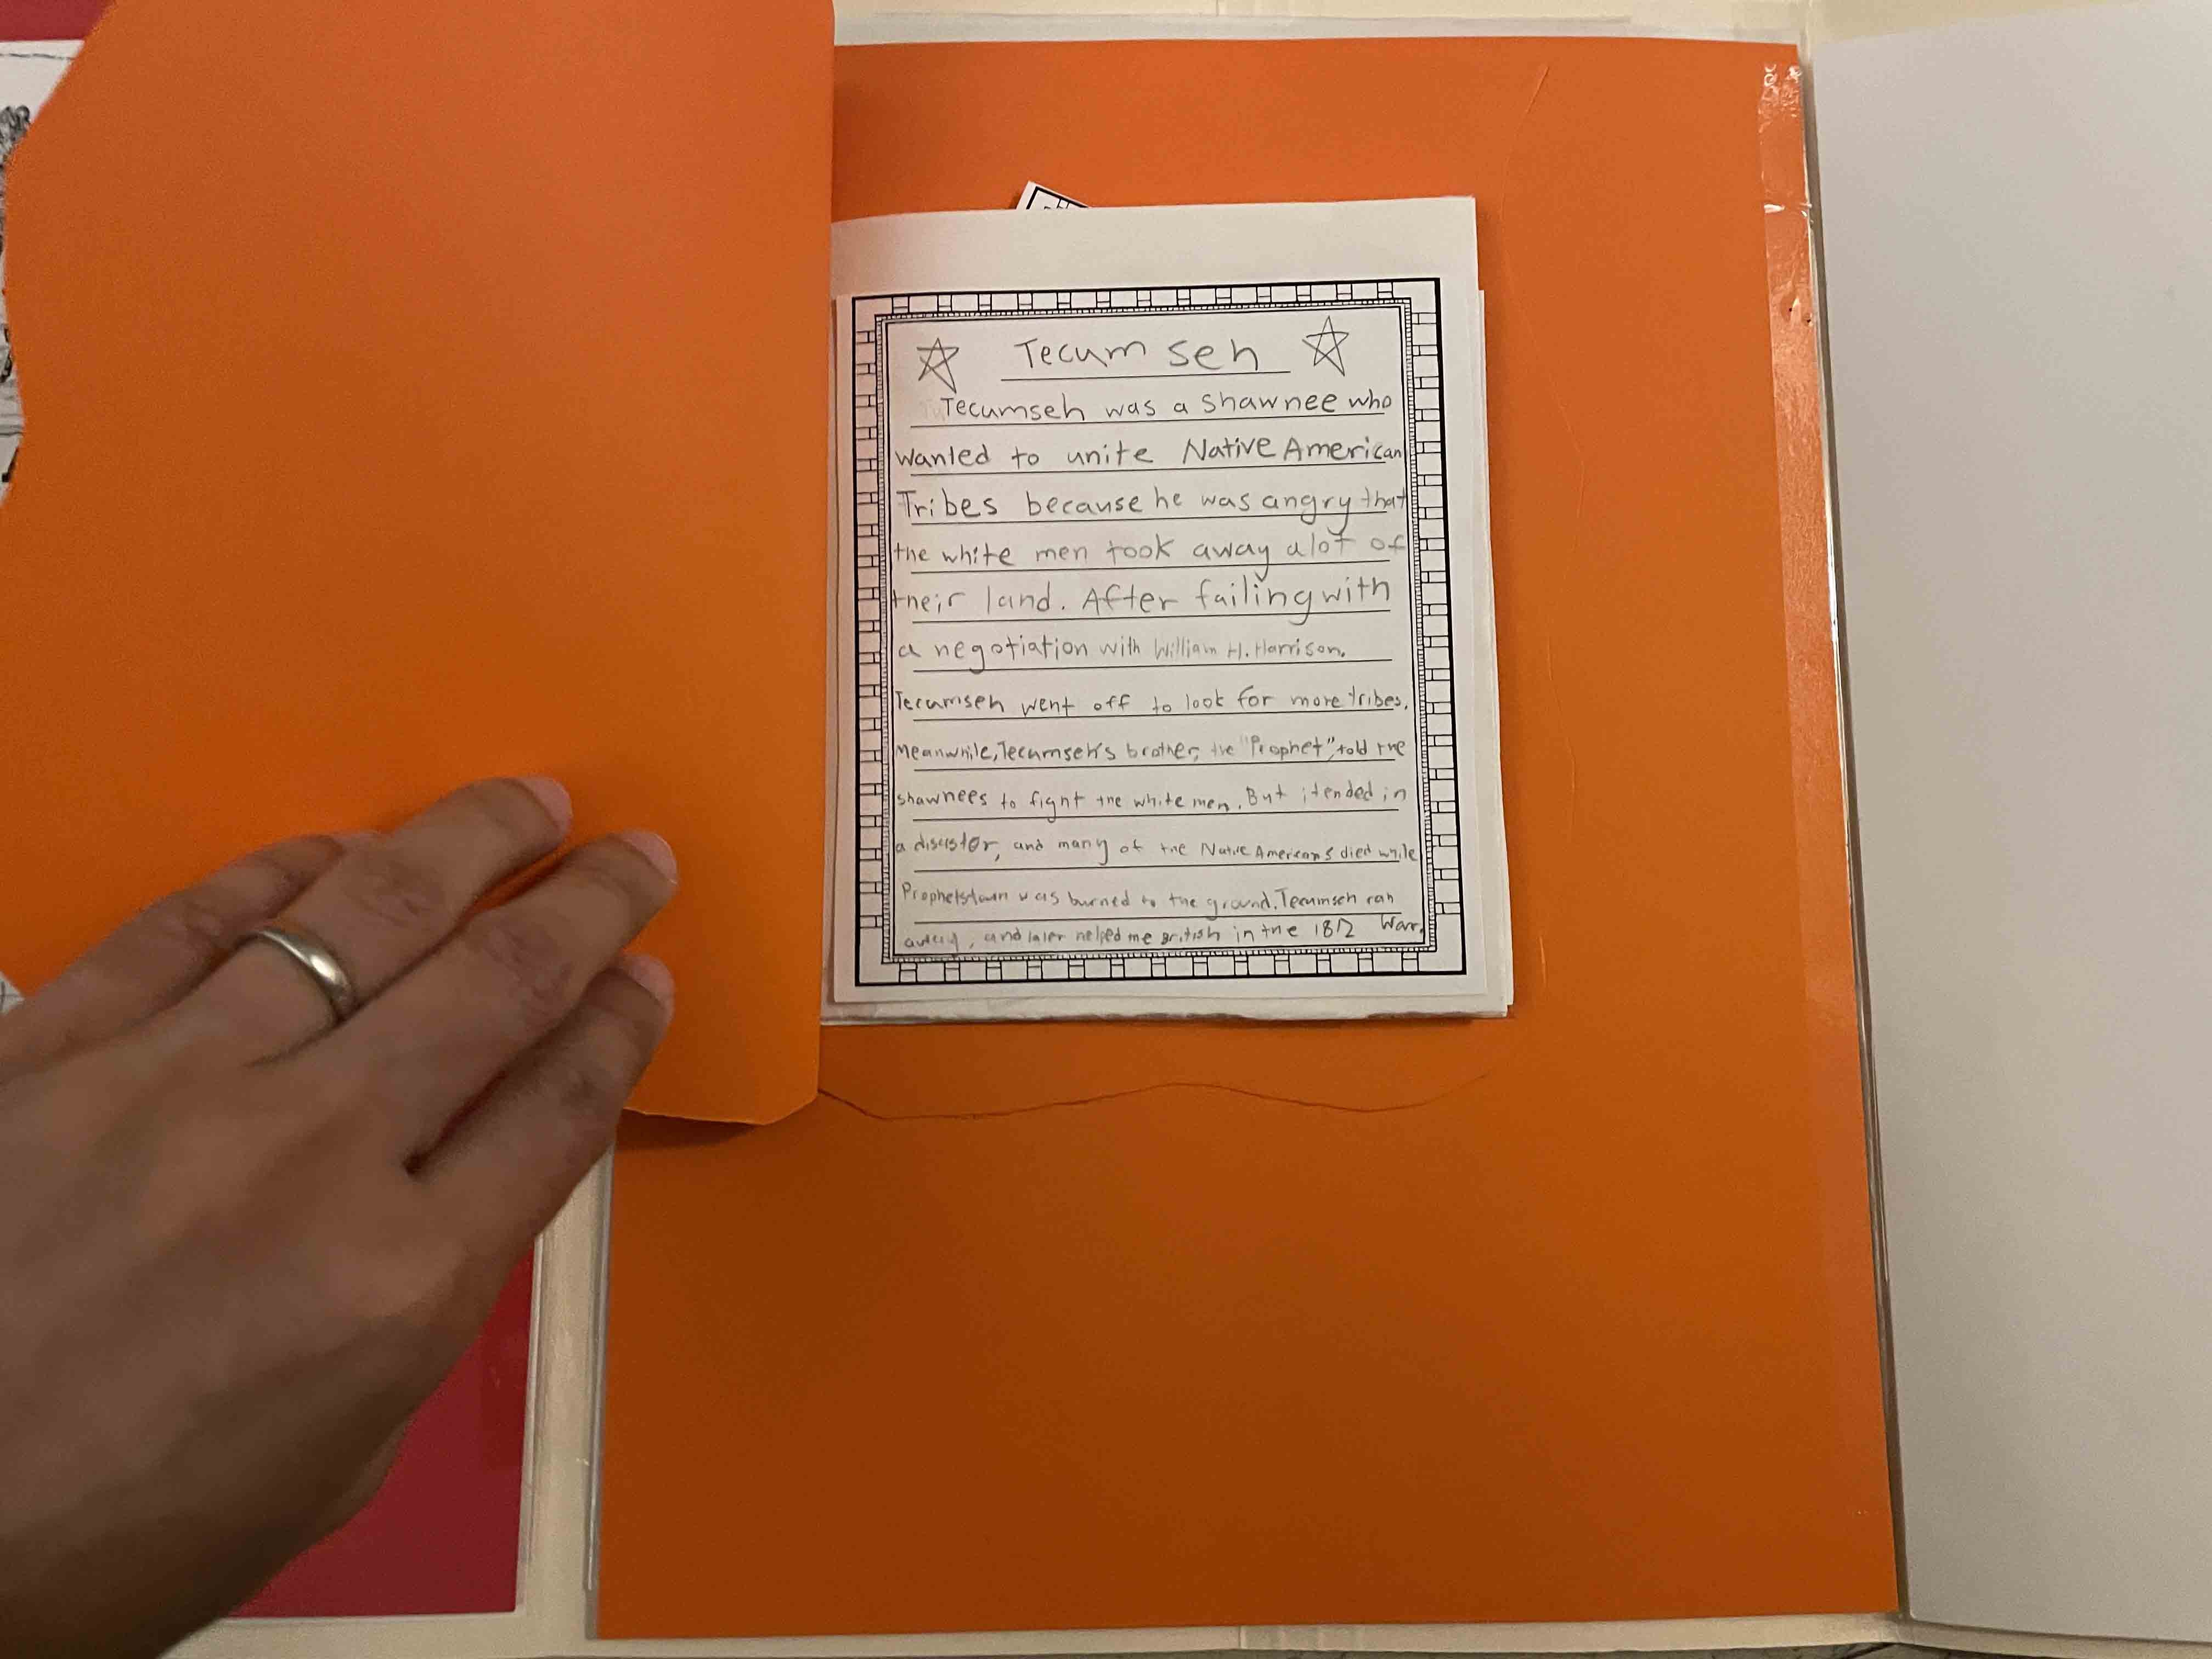 Tecumseh
Tecumseh was a Shawnee who
wanted to unite Native American
Tribes because he was angry that
the white men took away alot of
their land. After failing with
a negotiation with William H. Harrison.
Tecumseh went off to look for more tribes.
Meanwhile, Tecumseh's brother, the "Prophet", told the
shawnees to fight the white men. But it ended in
a disaster, and many of the Native Americans died while
Prophetstown was burned to the ground. Tecumseh ran
away, and later helped the British in the 1812 War.